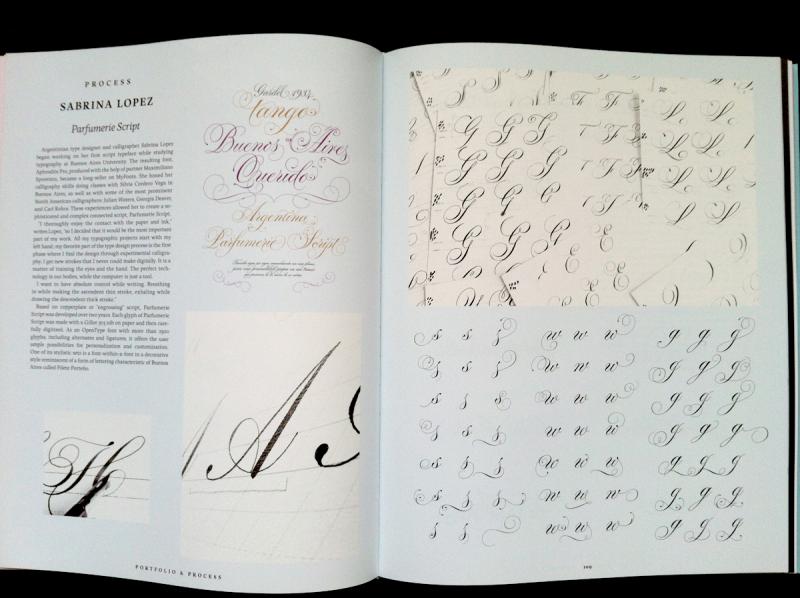 PROCESS
SABRINA LOPEZ
Parfumerie Script
Argentinian type designer and calligrapher Sabrina Lopez
began working on her first script typeface while studying
typography at Buenos Aires University. The resulting font,
Aphrodite Pro, produced with the help of partner Maximiliano
Sproviero, became a long-seller on MyFonts. She honed her
calligraphy skills doing classes with Silvia Cordero Vega in
Buenos Aires, as well as with some of the most prominent
North American calligraphers: Julian Waters, Georgia Deaver,
and Carl Rohrs. These experiences allowed her to create a so-
phisticated and complex connected script, Parfumerie Script.
"I thoroughly enjoy the contact with the paper and ink,"
writes Lopez, "so I decided that it would be the most important
part of my work. All my typographic projects start with my
left hand; my favorite part of the type design process is the first
phase where I find the design through experimental calligra-
phy. I get new strokes that I never could make digitally. It is a
matter of training the eyes and the hand. The perfect tech-
nology is our bodies, while the computer is just a tool.
I want to have absolute control while writing. Breathing
in while making the ascendent thin stroke, exhaling while
drawing the descendent thick stroke."
Based on copperplate or "engrossing" script, Parfumerie
Script was developed over two years. Each glyph of Parfumerie
Script was made with a Gillot 303 nib on paper and then care-
fully digitized. As an OpenType font with more than
glyphs, including alternates and ligatures, it offers the user
ample possibilities for personalization and customization.
One of its stylistic sets is a font-within-a-font in a decorative
style reminiscent of a form of lettering characteristic of Buenos
Aires called Filete Porteño.
Gardel 1934
tango
Buenos Aires
Querido
Argentina
Parfumerie Script
H
A
PORTFOLIO & PROCESS
S S T F F
G G G T F F L L
G G G L L L
G G G L L
G G G
E E
s s s w w w g g g
s s s w w w g g g
s s s w w w g g g
s s s w w w g g g
s s s w w w g g g
s s s w w w g g g
s s w w w g g g
109